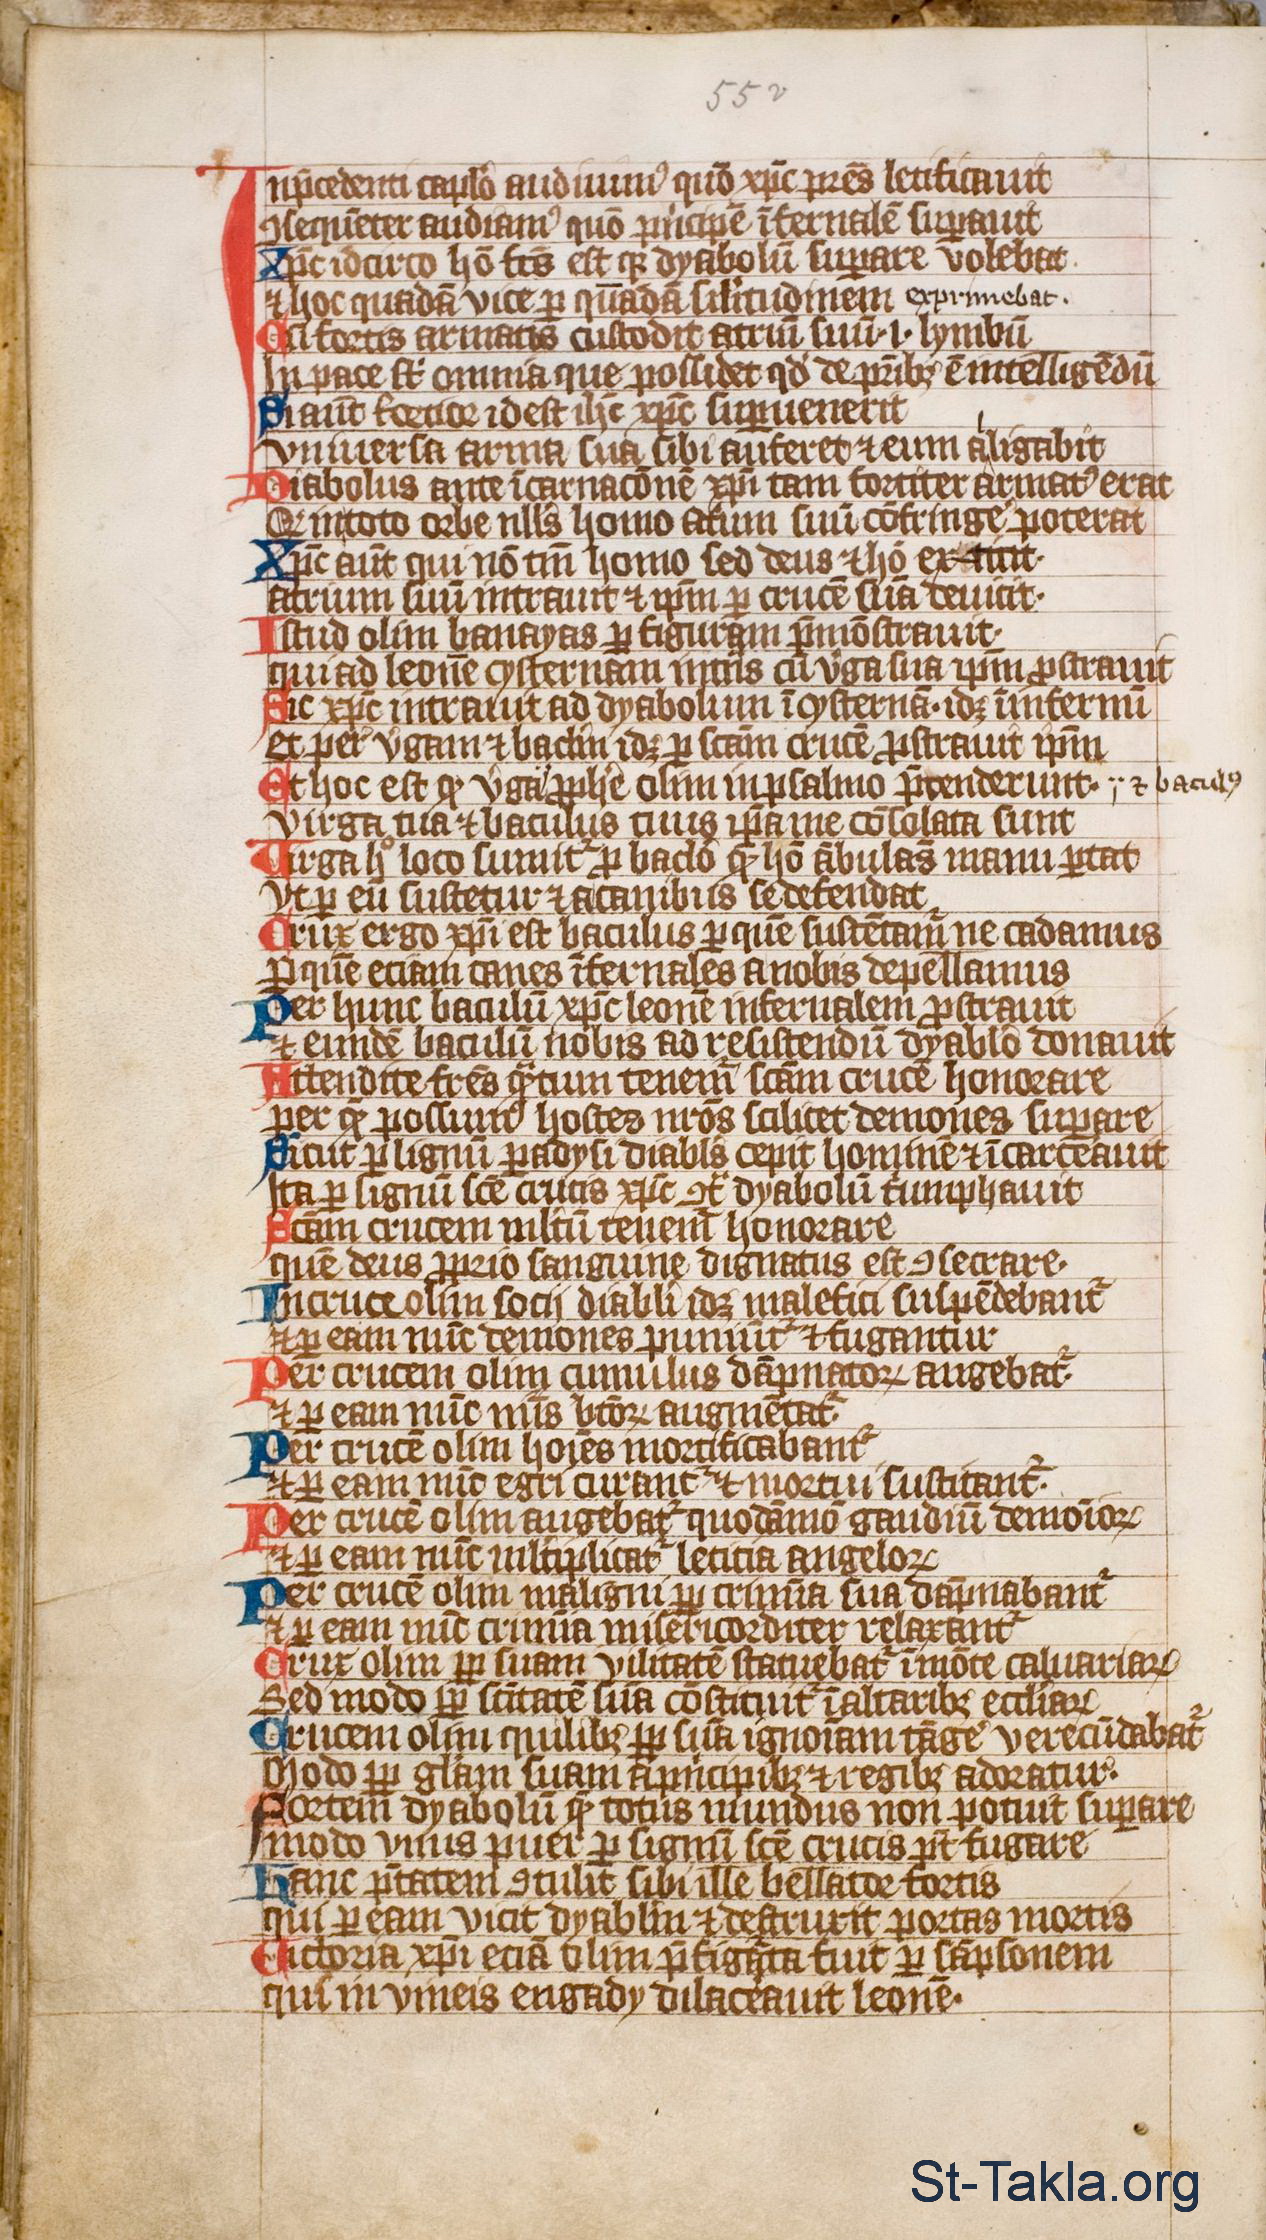 55v
In p̄cedenti capl̄o audiuim᷒ quō xp̄c pr̄es letificauit
ꝯsequēter audiam᷒ quō pͥncipē īfernalē suꝑauit
Xp̄c idcirco hō fcūs est qꝛ dyabolū suꝑare volebat.
⁊ hoc quadā vice ꝑ quādā sil̄itudinem exprimebat.
Cū fortis armatus custodit atriū suū .i. lymbū
In pace sūt omnia que possidet qd̓ de pr̄ibꝫ ē intelligēdū
Si aūt fortior id est ih̄c xp̄c suꝑuenerit
vniuersa arma sua sibi auferet ⁊ eum alligabit
Diabolus ante īcarnacōnē xp̄i tam fortiter armat᷒ erat
Qꝫ in toto orbe nll̄s homo atͥum suū cōfringe᷑ poterat
Xp̄c aūt qui nō tm̄ homo sed deus ⁊ hō extitit.
atrium suū intrauit ⁊ ip̄m ꝑ crucē suā deuicit.
Istud olim banayas ꝑ figuram p̄mōstrauit.
qui ad leonē cysternam intrās cū v̓ga sua ip̄m ꝓstrauit
Sic xp̄c intrauit ad dyabolum ī cysternā .idꝫ ī infernū
et per v̓gam ⁊ bacl̄m idꝫ ꝑ sc̄am crucē ꝓstrauit ip̄m
Et hoc est qᷓ v̓ga ꝓph̄e olim in psalmo p̄tenderunt. ⁊ baculꝯ
Virga tua ⁊ baculus tuus ip̄a me cōsolata sunt
Virga hͦ loco sumit᷑ ꝓ bacl̄o qᷓ hō ābulās manu ꝑtat
Vt ꝑ eū sustētur ⁊ a canibus se defendat
Crux ergo xp̄i est baculus ꝑ quē sustētam᷑ ne cadamus
ꝑ quē eciam canes īfernales a nobis depellamus
Per hunc baculū xp̄c leonē infernalem ꝓstrauit
⁊ eundē baculū nobis ad resistendū dyabl̄o donauit
Attendite fr̄es qᷓntum tenem᷑ sc̄am crucē honorare
per qᷓ possum᷒ hostes nr̄os scilicet demones suꝑare
Sicut ꝑ lignū ꝑadysi diabl̄s cepit hominē ⁊ īcarc̓auit
Ita ꝑ signū sc̄e crucis xp̄c ꝯtͣ dyabolū tͥumphauit
Sc̄am crucem ml̄tū tenem᷑ honorare
quē deus ꝓprio sanguine dignatus est ꝯsecrare.
In cruce olim socij diabl̄i idꝫ malefici suspēdebant᷑
⁊ ꝑ eam nūc demones puniūt᷑ ⁊ fugantur
Per crucem olim cumulus dāpnatoꝝ augebat᷑
⁊ ꝑ eam nūc nūs btōꝝ augmētat᷑
Per crucē olim hoīes mortificabant᷑
⁊ ꝑ eam nūc egri curant᷑ ⁊ mortui suscitant᷑.
Per crucē olim augebat᷑ quodāmō gaudiū demoīoꝝ
⁊ ꝑ eam nūc ml̄tiplicat᷑ leticia angeloꝝ
Per crucē olim maligni ꝓp̄ crimīa sua dāpnabant᷑
⁊ ꝑ eam nūc crimīa mis̓icorditer relaxant᷑
Crux olim ꝓp̄ suam vilitatē statuebat᷑ ī mōte caluariaꝝ
Sed modo ꝓp̄ sc̄itatē suā cōstituit᷑ ī altaribꝫ eccl̄iaꝝ
Crucem olim quilibꝫ ꝓp̄ suā ignoīam tāge᷑ verecūdabat᷑
Modo ꝓp̄ gl̄am suam a pͥncipibꝫ ⁊ regibꝫ adoratur.
Fortem dyabolū qᷓ totus mundus non potuit suꝑare
modo vnus puer ꝑ signū sc̄e crucis pt̄ fugare
Hanc p̄tatem ꝯtulit sibi ille bellator fortis
qui ꝑ eam vicit dyabl̄m ⁊ destruxit portas mortis
Victoria xp̄i eciā olim p̄figᷓta fuit ꝑ sāpsonem
qui in vineis engady dilac̓auit leonē.
St-Takla.org